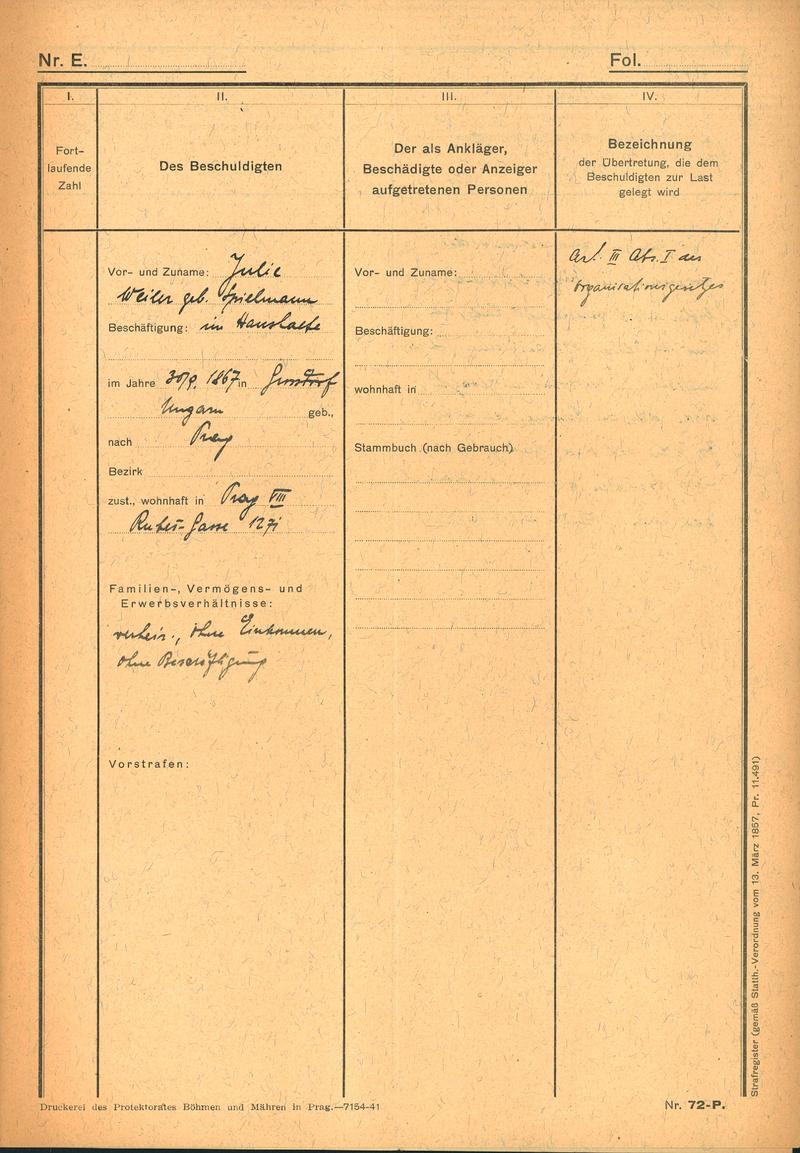 Nr. E.
Fol.
I.
II.
III.
IV.
Fort-
laufende
Zahl
Des Beschuldigten
Der als Ankläger,
Beschädigte oder Anzeiger
aufgetretenen Personen
Bezeichnung
der Übertretung, die dem
Beschuldigten zur Last
gelegt wird
Vor- und Zuname: Julie
Weiler geb. Spielmann
Beschäftigung: im Haushalte
im Jahre 30/9. 1867 in
Ungarn geb.,
nach Prag
Bezirk
zust., wohnhaft in Prag VIII
Gasse
Familien-, Vermögens- und
Erwerbsverhältnisse:
verheir., ohne Einkommen,
ohne Beschäftigung
Vorstrafen:
Vor- und Zuname:
Beschäftigung:
wohnhaft in
Stammbuch (nach Gebrauch)
Art. III Abs. I des
Organisationsgesetzes
Strafregister (gemäß Statth.-Verordnung vom 13. März 1857, Pr. 11.491)
Druckerei des Protektorates Böhmen und Mähren in Prag.—7154-41
Nr. 72-P.